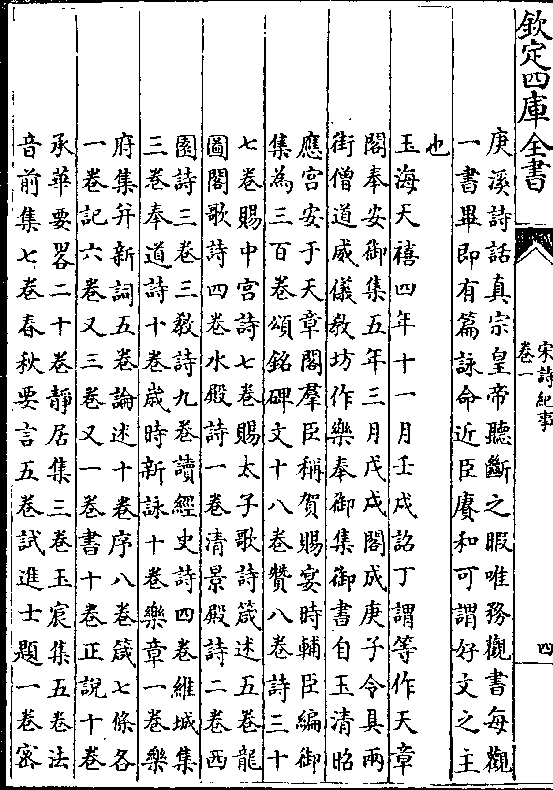 欽定四庫全書
宋詩紀事
卷一
四
庚溪詩話真宗皇帝聽斷之暇唯務觀書每觀
一書畢即有篇詠命近臣賡和可謂好文之主
也
玉海天禧四年十一月壬戌詔丁謂等作天章
閣奉安御集五年三月戊戌閣成庚子令具兩
街僧道威儀教坊作樂奉御集御書自玉清昭
應宫安于天章閣羣臣稱賀賜宴時輔臣編御
集為三百卷頌銘碑文十八卷贊八卷詩三十
七卷賜中宫詩七卷賜太子歌詩箴述五卷龍
圖閣歌詩四卷水殿詩一卷清景殿詩二卷西
園詩三卷三教詩九卷讀經史詩四卷維城集
三卷奉道詩十卷歲時新詠十卷樂章一卷樂
府集并新詞五卷論述十卷序八卷箴七條各
一卷記六卷又三卷又一卷書十卷正說十卷
承華要畧二十卷靜居集三卷玉宸集五卷法
音前集七卷春秋要言五卷試進士題一卷密